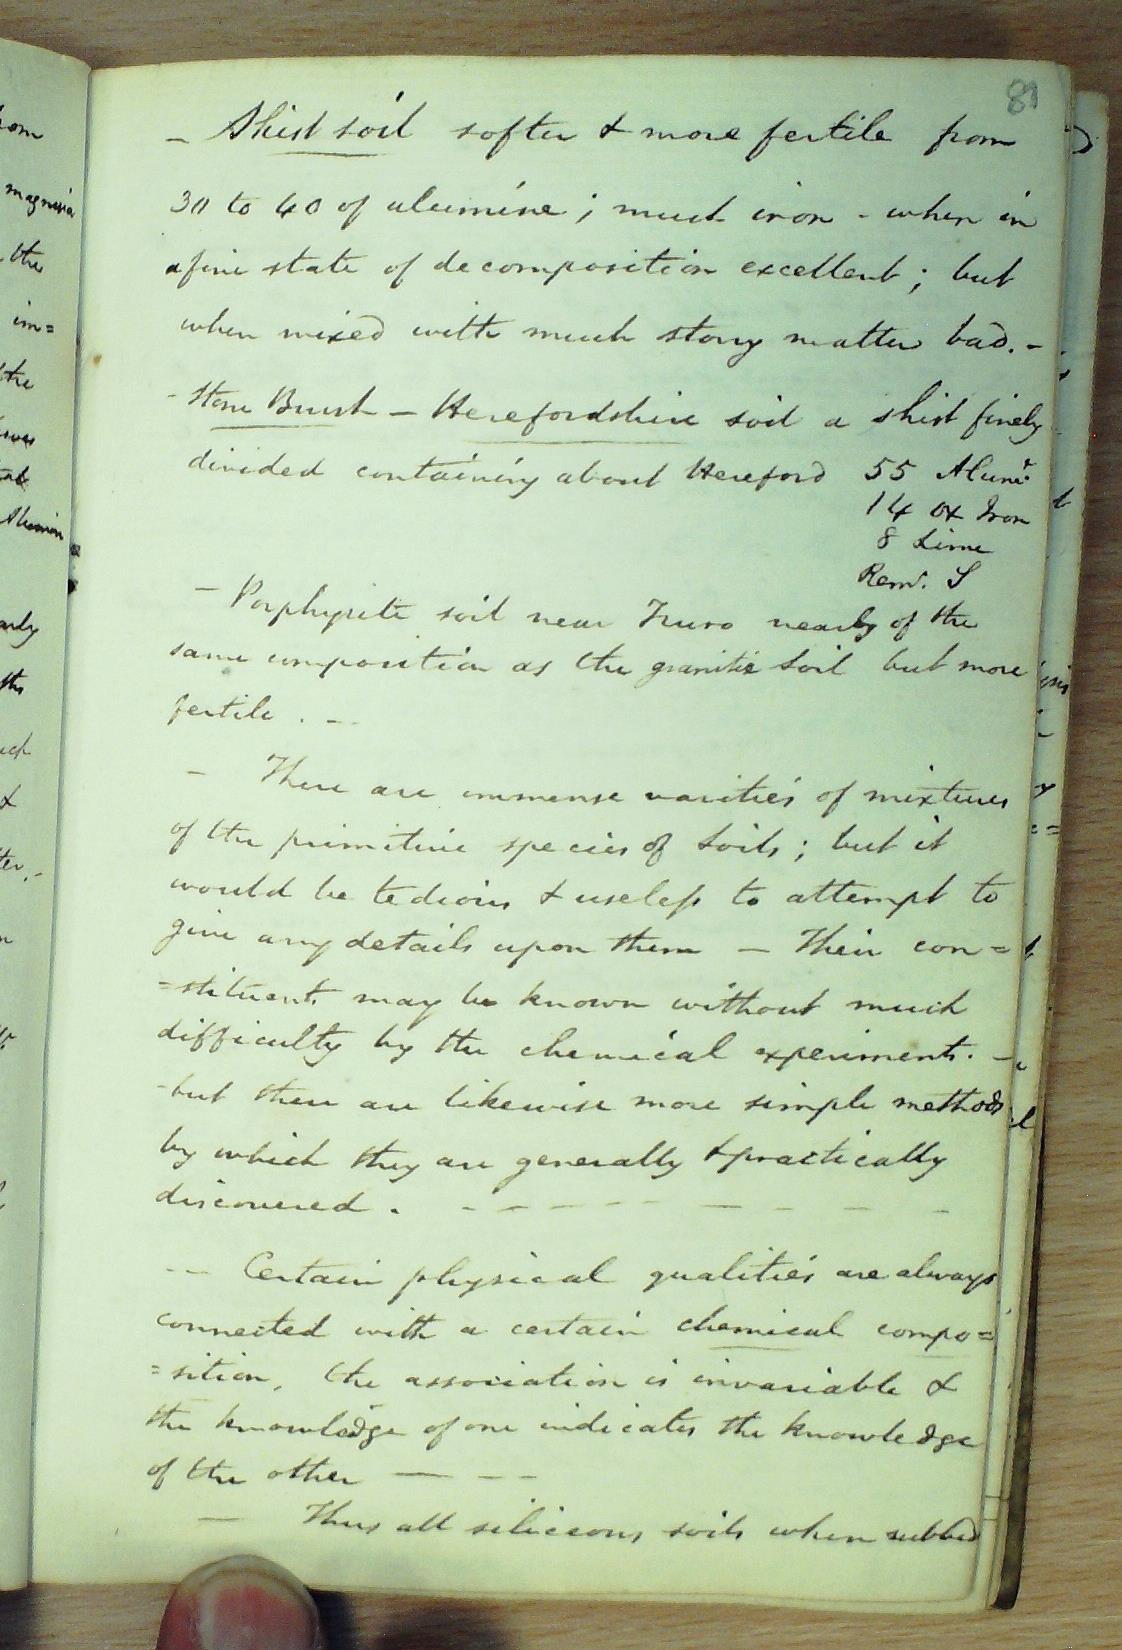 81
- Shist soil softer & more fertile from
30 to 40 of alumine; much iron - when in
a fine state of decomposition excellent; but
when mixed with much stony matter bad. -
- Stone Brush - Herefordshire soil a shist finely
divided containing about Hereford 55 Alumе
14 ox Iron
8 Lime
Remr. S
- Porphyrite soil near Truro nearly of the
same composition as the granitic soil but more
fertile. -
- There are immense varieties of mixtures
of the primitive species of soils; but it
would be tedious & useless to attempt to
give any details upon them - Their con=
=stituents may be known without much
difficulty by the chemical experiments. -
- but there are likewise more simple methods
by which they are generally & practically
discovered. - - - - - - - - - -
-- Certain physical qualities are always
connected with a certain chemical compo=
=sition, the association is invariable &
the knowledge of one indicates the knowledge
of the other - - -
- Thus all siliceous soils when rubbed
from
magnesia
the
im=
the